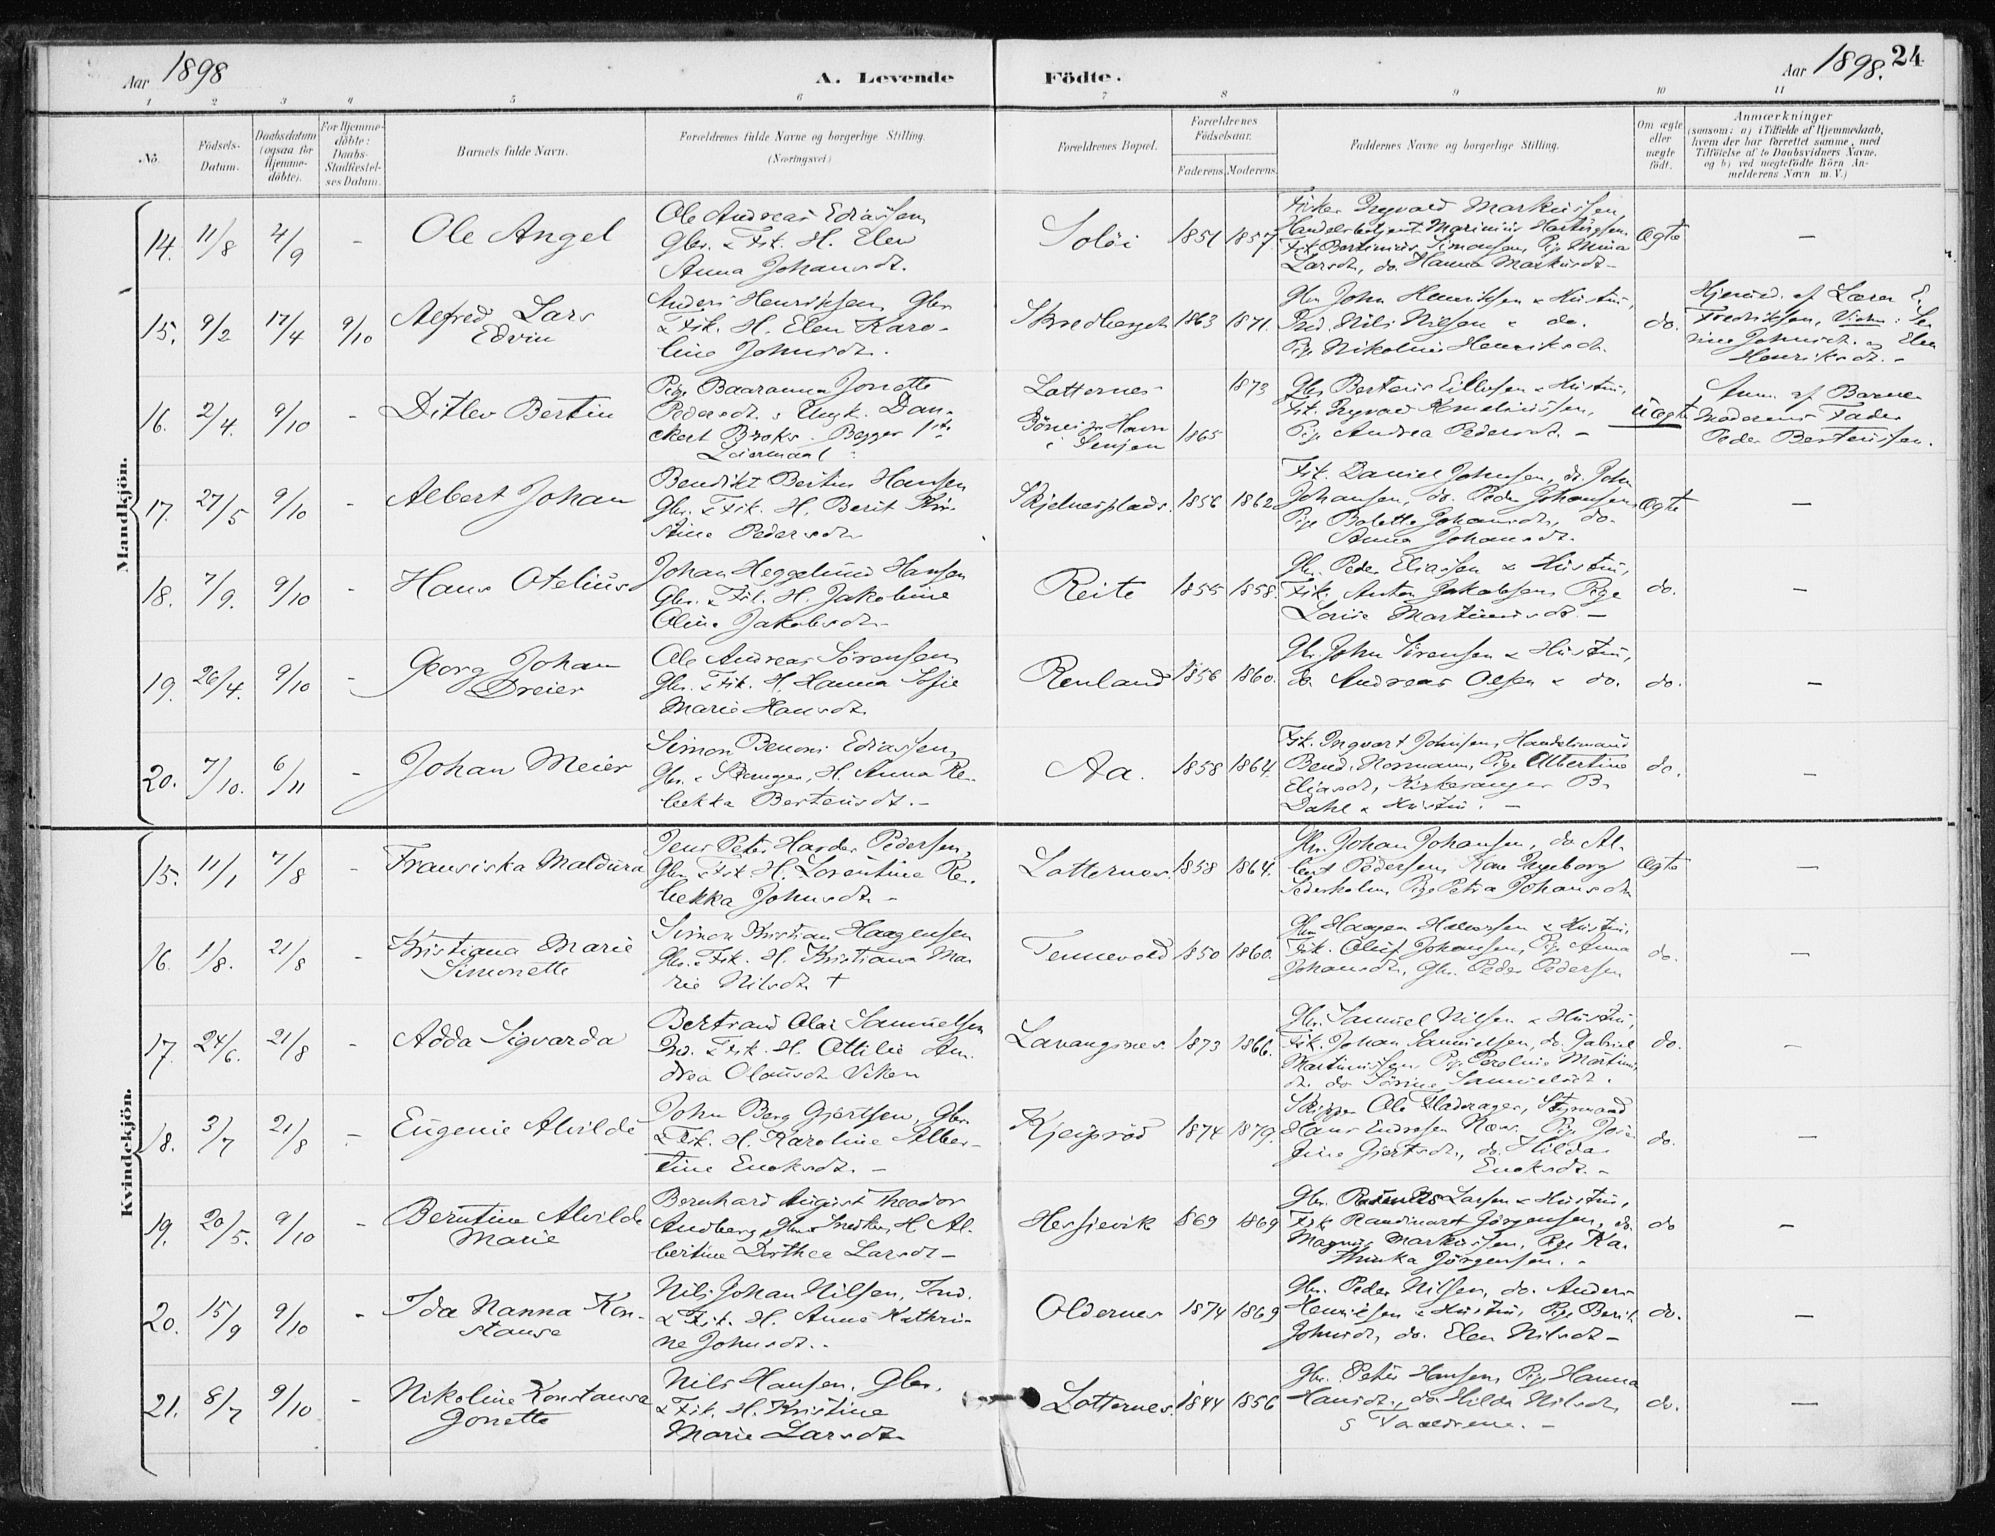 Aar 1898
A. Levende
Födte.
Aar 1898.
24
1 2 3 4 5 6 7 8 9 10 11
No.
Födsels-
Datum.
Daabsdatum
(ogsaa for
Hjemme-
döbte).
For Hjemme-
döbte:
Daabs-
Stadfæstel-
ses Datum.
Barnets fulde Navn.
Forældrenes fulde Navne og borgerlige Stilling.
(Næringsvei)
Forældrenes Bopæl.
Forældrenes
Födselsaar.
Faderens. Moderens.
Faddernes Navne og borgerlige Stilling.
Om ægte
eller
uægte
født.
Anmærkninger
(saasom: a) i Tilfælde af Hjemmedaab,
hvem der har forrettet samme, med
Tilföielse af to Daabsvidners Navne,
og b) ved uægtefödte Börn An-
melderens Navn m. V.)
Mandkjön.
14. 11/8 4/9 - Ole Angel
Ole Andreas Ediassen
Gbr. & Fisk. H. Elen
Anna Johansdt.
Solöi 1851 1857.
Fisker Ingvald Markussen,
Handelsbetjent Marinius Hartvigsen
Fisk. Bertinius Simonsen, Pige Mina
Larsdt, do. Hanna Markusdt -
Ægte -
15. 9/2 17/4 9/10 Alfred Lars
Edvin
Anders Henriksen, Gbr.
& Fisk. H. Elen Karo-
line Johnsdt.
Skredberget 1863 1871.
Gbr John Henriksen & Hustru,
Ind. Nils Nilsen & do.
Pige Nikoline Henriksdt.
do.
Hjemmed. af Lærer E.
Fredriksen, Vidn: Se-
rine Johnsdt. og Elen
Henriksdt. -
16. 2/4. 9/10 - Ditlev Bertin
Pige Baaranna Jonette
Pedersdt. & Ungk. Dan-
ckert Broks. Begges 1ste
Leiermaal.
Lotternes 1873
i Senjen 1865
Gbr Berteus Ellevsen & Hustru,
Fisk. Ingvald Kornelinssen,
Pige Andrea Pedersdt. -
Uægte
Anm. af Barne-
moderens Fader
Peder Berteussen.
17. 27/5 9/10 - Albert Johan
Bendikt Bertus Hansen
Gbr. & Fisk. H. Berit Kir-
stine Pedersdt.
Skjelnesplads. 1856 1862
Fisk. Daniel Johnsen, do. John
Johansen, do. Peder Johansen,
Pige Bolette Johansdt, do.
Anna Johansdt.
Ægte -
18. 7/9. 9/10 - Hans Otelius
Johan Heggelund Hansen
Gbr. & Fisk. H. Jakobine
Oline Jakobsdt.
Reite 1855 1858.
Gbr. Peder Eliassen & Hustru,
Fisk. Anton Jakobsen, Pige
Lovise Martinusdt. -
do. -
19. 26/4. 9/10 - Georg Johan
Dreier
Ole Andreas Sörensen
Gbr. & Fisk. H. Hanna Sofie
Marie Hansdt.
Renland 1856 1860.
Gbr. John Sörensen & Hustru,
do. Andreas Olsen & do.
do. -
20. 7/10. 6/11 - Johan Meier
Simon Benoni Ediassen,
Gbr. & H. Anna Re-
bekka Berteusdt. -
Aa. 1858 1864
Fisk. Ingvart Johnsen, Handelsmand
Bend. Normann, Pige Albertine
Eliasdt, Kirkesanger B.
Dahl & Hustru. -
do. -
Kvindekjön.
15. 11/1 7/8 - Fransiska Maldura
Jens Peter Harder Pedersen,
Gbr & Fisk H. Lorentine Re-
bekka Johnsdt. -
Lotternes. 1858 1864.
Gbr. Johan Johansen, do. Al-
bert Pedersen, Kone Ingeborg
Sederholm, Pige Petra Johansdt
Ægte -
16. 1/8. 21/8 - Kristiana Marie
Simonette
Simon Kristian Haagensen
Gbr. & Fisk. H. Kristiana Ma-
rie Nilsdt +
Tennevold 1850 1860.
Gbr Haagen Halvorsen & Hustru,
Fisk. Oluf Johansen, Pige Anna
Johansdt, Gbr. Peder Pedersen
do. -
17. 24/6. 21/8 - Adda Sigvarda
Bertrand Olai Samuelsen
Ind. & Fisk. H. Ottilie An-
drea Olausdt Viken
Lavangsnes. 1873 1866.
Gbr. Samuel Nilsen & Hustru,
Fisk. Johan Samuelsen, do. Gabriel
Martinussen, Pige Pauline Martinus-
dt, do. Sörine Samuelsdt.
do. -
18. 3/7 21/8 - Eugenie Alvilde
John Berg Gjertsen, Gbr.
& Fisk. H. Karoline Alber-
tine Enoksdt. -
Kjeipröd 1874 1879.
Skipper Ole Fladsrager, Styrmand
Hans Næss, Pige Jose-
fine Gjertsdt, do. Hilda
Enoksdt. -
do. -
19. 20/5. 9/10 - Berntine Alvilde
Marie
Bernhard August Theodor
Andberg, Gbr & Snedker, H. Al-
bertine Dorthea Larsdt -
Hessievik 1869 1869
Gbr. Larsen & Hustru,
Fisk. Randinart Jörgensen, do.
Magnus Markussen, Pige Ka-
thinka Jörgensen. -
do -
20. 15/9 9/10 - Ida Nanna Kon-
stanse
Nils Johan Nilsen, Ind.
& Fisk. H. Anne Kathri-
ne Johnsdt. -
Oldernes 1874 1869
Gbr. Peder Nilsen, do. Anders
Henriksen & Hustru, Pige Berit
Johnsdt, do. Elen Nilsdt -
do. -
21. 8/7 9/10 - Nikoline Konstansa
Jonette
Nils Hansen, Gbr.
& Fisk. H. Kristine
Marie Larsdt
Lotternes. 1844 1856
Gbr. Peter Hansen, Pige Hanna
Hansdt, do. Hilda Nilsdt,
& Forældrene. -
do. -